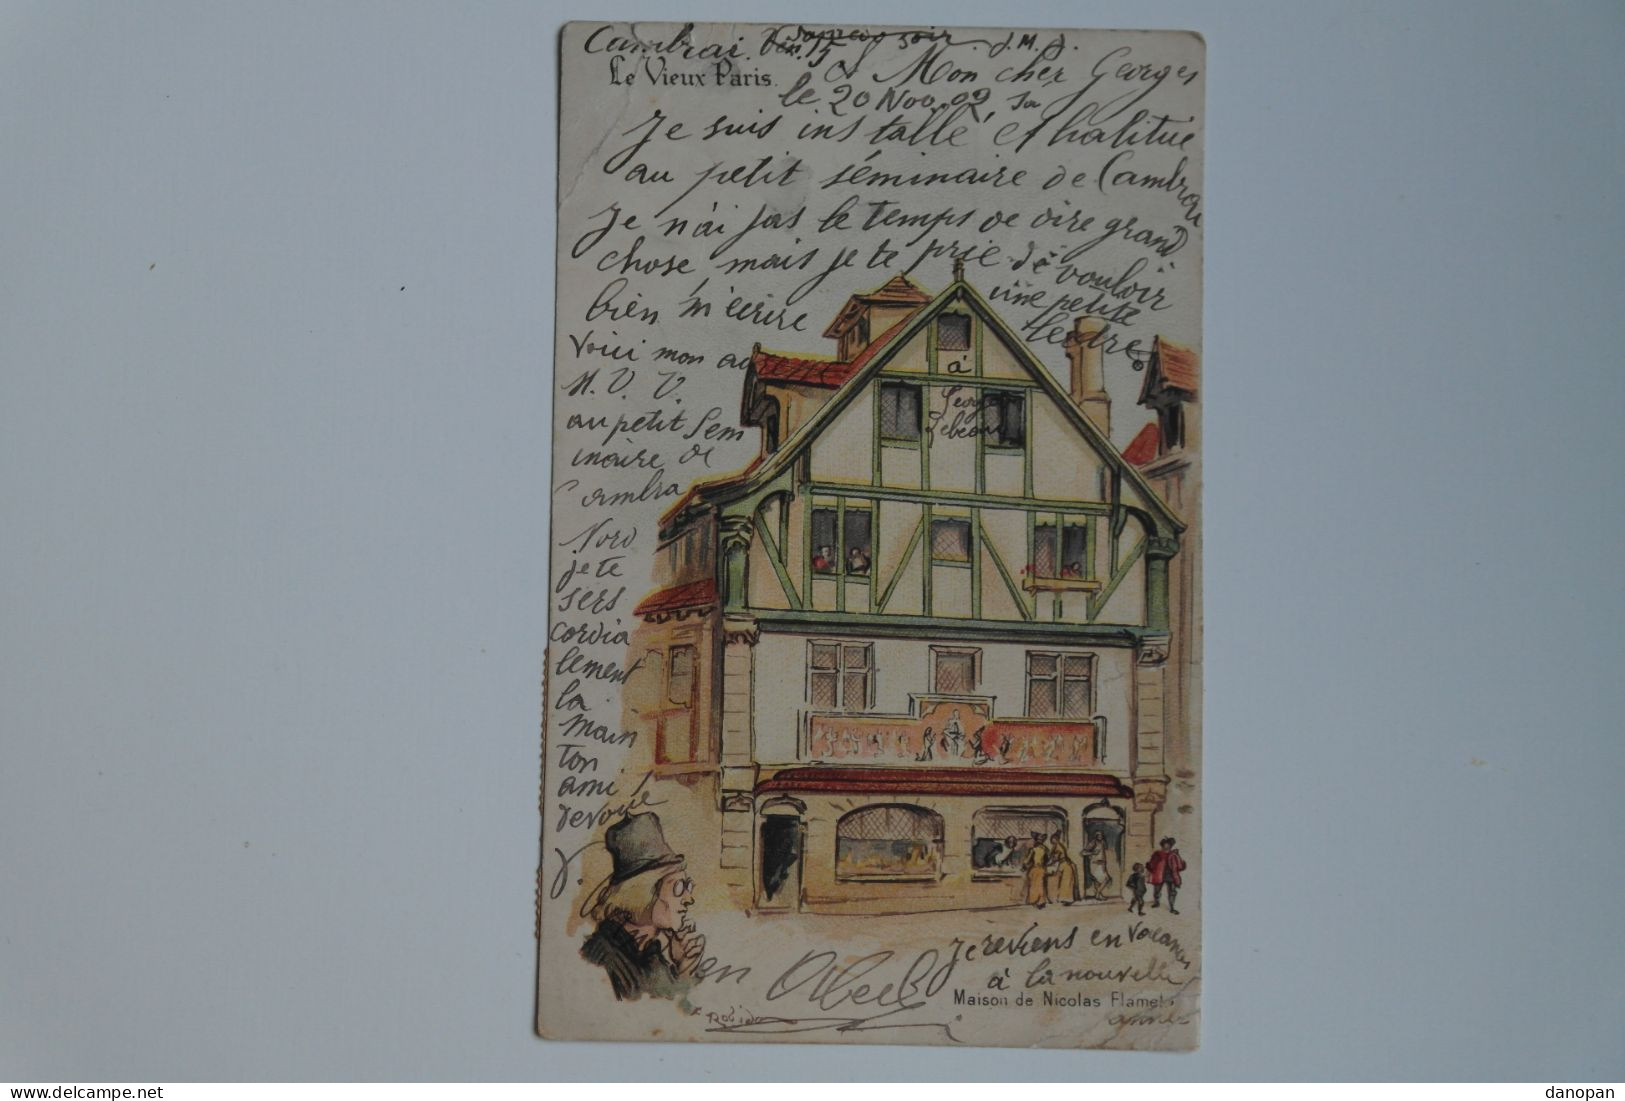 Cambrai. soir J. M. J.
Le Vieux Paris.
Mon cher Georges
le 20 Nov 02
Je suis installé et habitué
au petit séminaire de Cambrai
Je n'ai pas le temps de dire grand
chose mais je te prie de vouloir
bien m'écrire une petite
lettre.
Voici mon adresse
M. V. V.
au petit Sem
inaire de
Cambra
Nord
je te
sers
cordia
lement
la
main
ton
ami
devoué
à
Georges
Lebeau
Je reviens en vacances
à la nouvelle
année
Abel
Maison de Nicolas Flamel
A. Robida
danopan